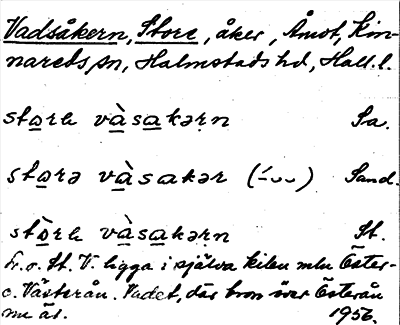 Vadsåkern, Store, åker, Åmot, Kin-
nareds sn, Halmstads hd, Hall. l.
store vàsakərn Sa.
storə vàsakər (´-◡◡) Sand.
stòre vàsakərn St.
L. o. St. V. ligga i själva kilen mln Öster-
o. Västerån. Vadet, där bron över Österån
nu är. 1956.